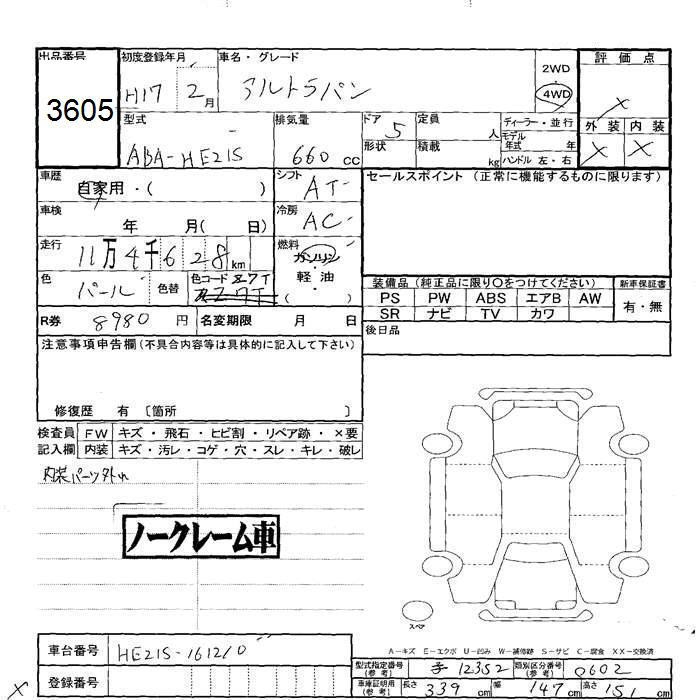 出品番号 初度登録年月 車名・グレード 2WD 評価点
3605 H17 2月 アルトラパン 4WD ×
型式 排気量 ドア 定員 ディーラー・並行 外装 内装
ABA-HE21S 660cc 5 人 モデル年式 年 × ×
形状 積載 kg ハンドル 左・右
車歴 自家用・( ) シフト AT セールスポイント (正常に機能するものに限ります)
車検 年 月( 日) 冷房 AC
走行 11万4千628km 燃料 ガソリン・軽油 ( )
色 パール 色替 色コード Z7T
装備品 (純正品に限り○をつけてください) 新車保証書
PS PW ABS エアB AW 有・無
SR ナビ TV カワ
R券 8980円 名変期限 月 日 後日品
注意事項申告欄 (不具合内容等は具体的に記入して下さい)
修復歴 有 〔箇所 〕
検査員 FW キズ・飛石・ヒビ割・リペア跡・×要
記入欄 内装 キズ・汚レ・コゲ・穴・スレ・キレ・破レ
内装パーツ外れ
ノークレーム車
スペア
A-キズ E-エクボ U-凹み W-補修跡 S-サビ C-腐食 XX-交換済
車台番号 HE21S-161210 型式指定番号 (参考) 12352 類別区分番号 (参考) 0602
登録番号 車庫証明用 (参考) 長さ 339cm 幅 147cm 高さ 151cm
×